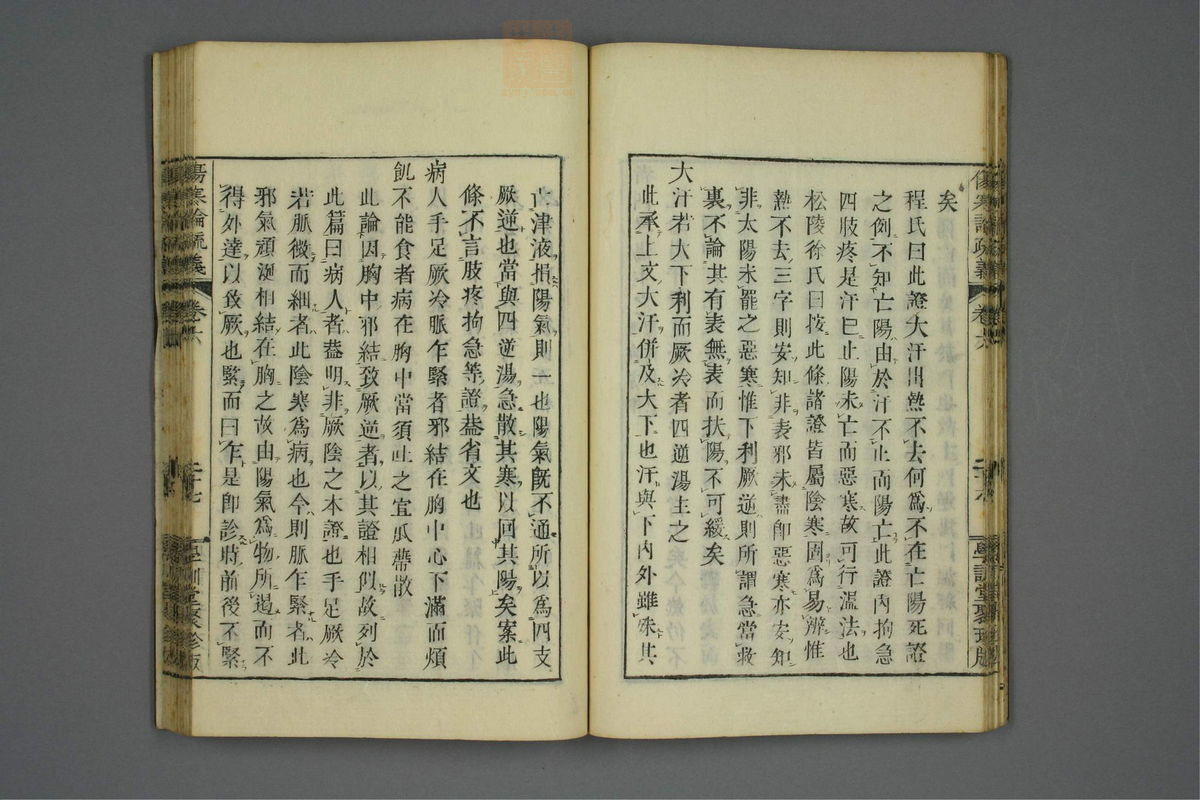 傷寒論疏義 卷六 二十六 學訓堂聚珍版
矣
程氏曰此證大汗出熱不去何爲不在亡陽死證
之例不知亡陽由於汗不止而陽亡此證內拘急
四肢疼是汗已止陽未亡而惡寒故可行溫法也
松陵徐氏曰按此條諸證皆屬陰寒固爲易辨惟
熱不去三字則安知非表邪未盡卽惡寒亦安知
非太陽未罷之惡寒惟下利厥逆則所謂急當救
裏不論其有表無表而扶陽不可緩矣
大汗若大下利而厥冷者四逆湯主之
此承上文大汗併及大下也汗與下內外雖殊其
亡津液損陽氣則一也陽氣旣不通所以爲四支
厥逆也當與四逆湯急散其寒以回其陽矣案此
條不言肢疼拘急等證葢省文也
病人手足厥冷脈乍緊者邪結在胸中心下滿而煩
飢不能食者病在胸中當須吐之宜瓜蒂散
此論因胸中邪結致厥逆者以其證相似故列於
此篇曰病人者葢明非厥陰之本證也手足厥冷
若脈微而細者此陰寒爲病也今則脈乍緊者此
邪氣頑涎相結在胸之故由陽氣爲物所遏而不
得外達以致厥也緊而曰乍是卽診時前後不緊
傷寒論疏義 卷六 二十七 學訓堂聚珍版